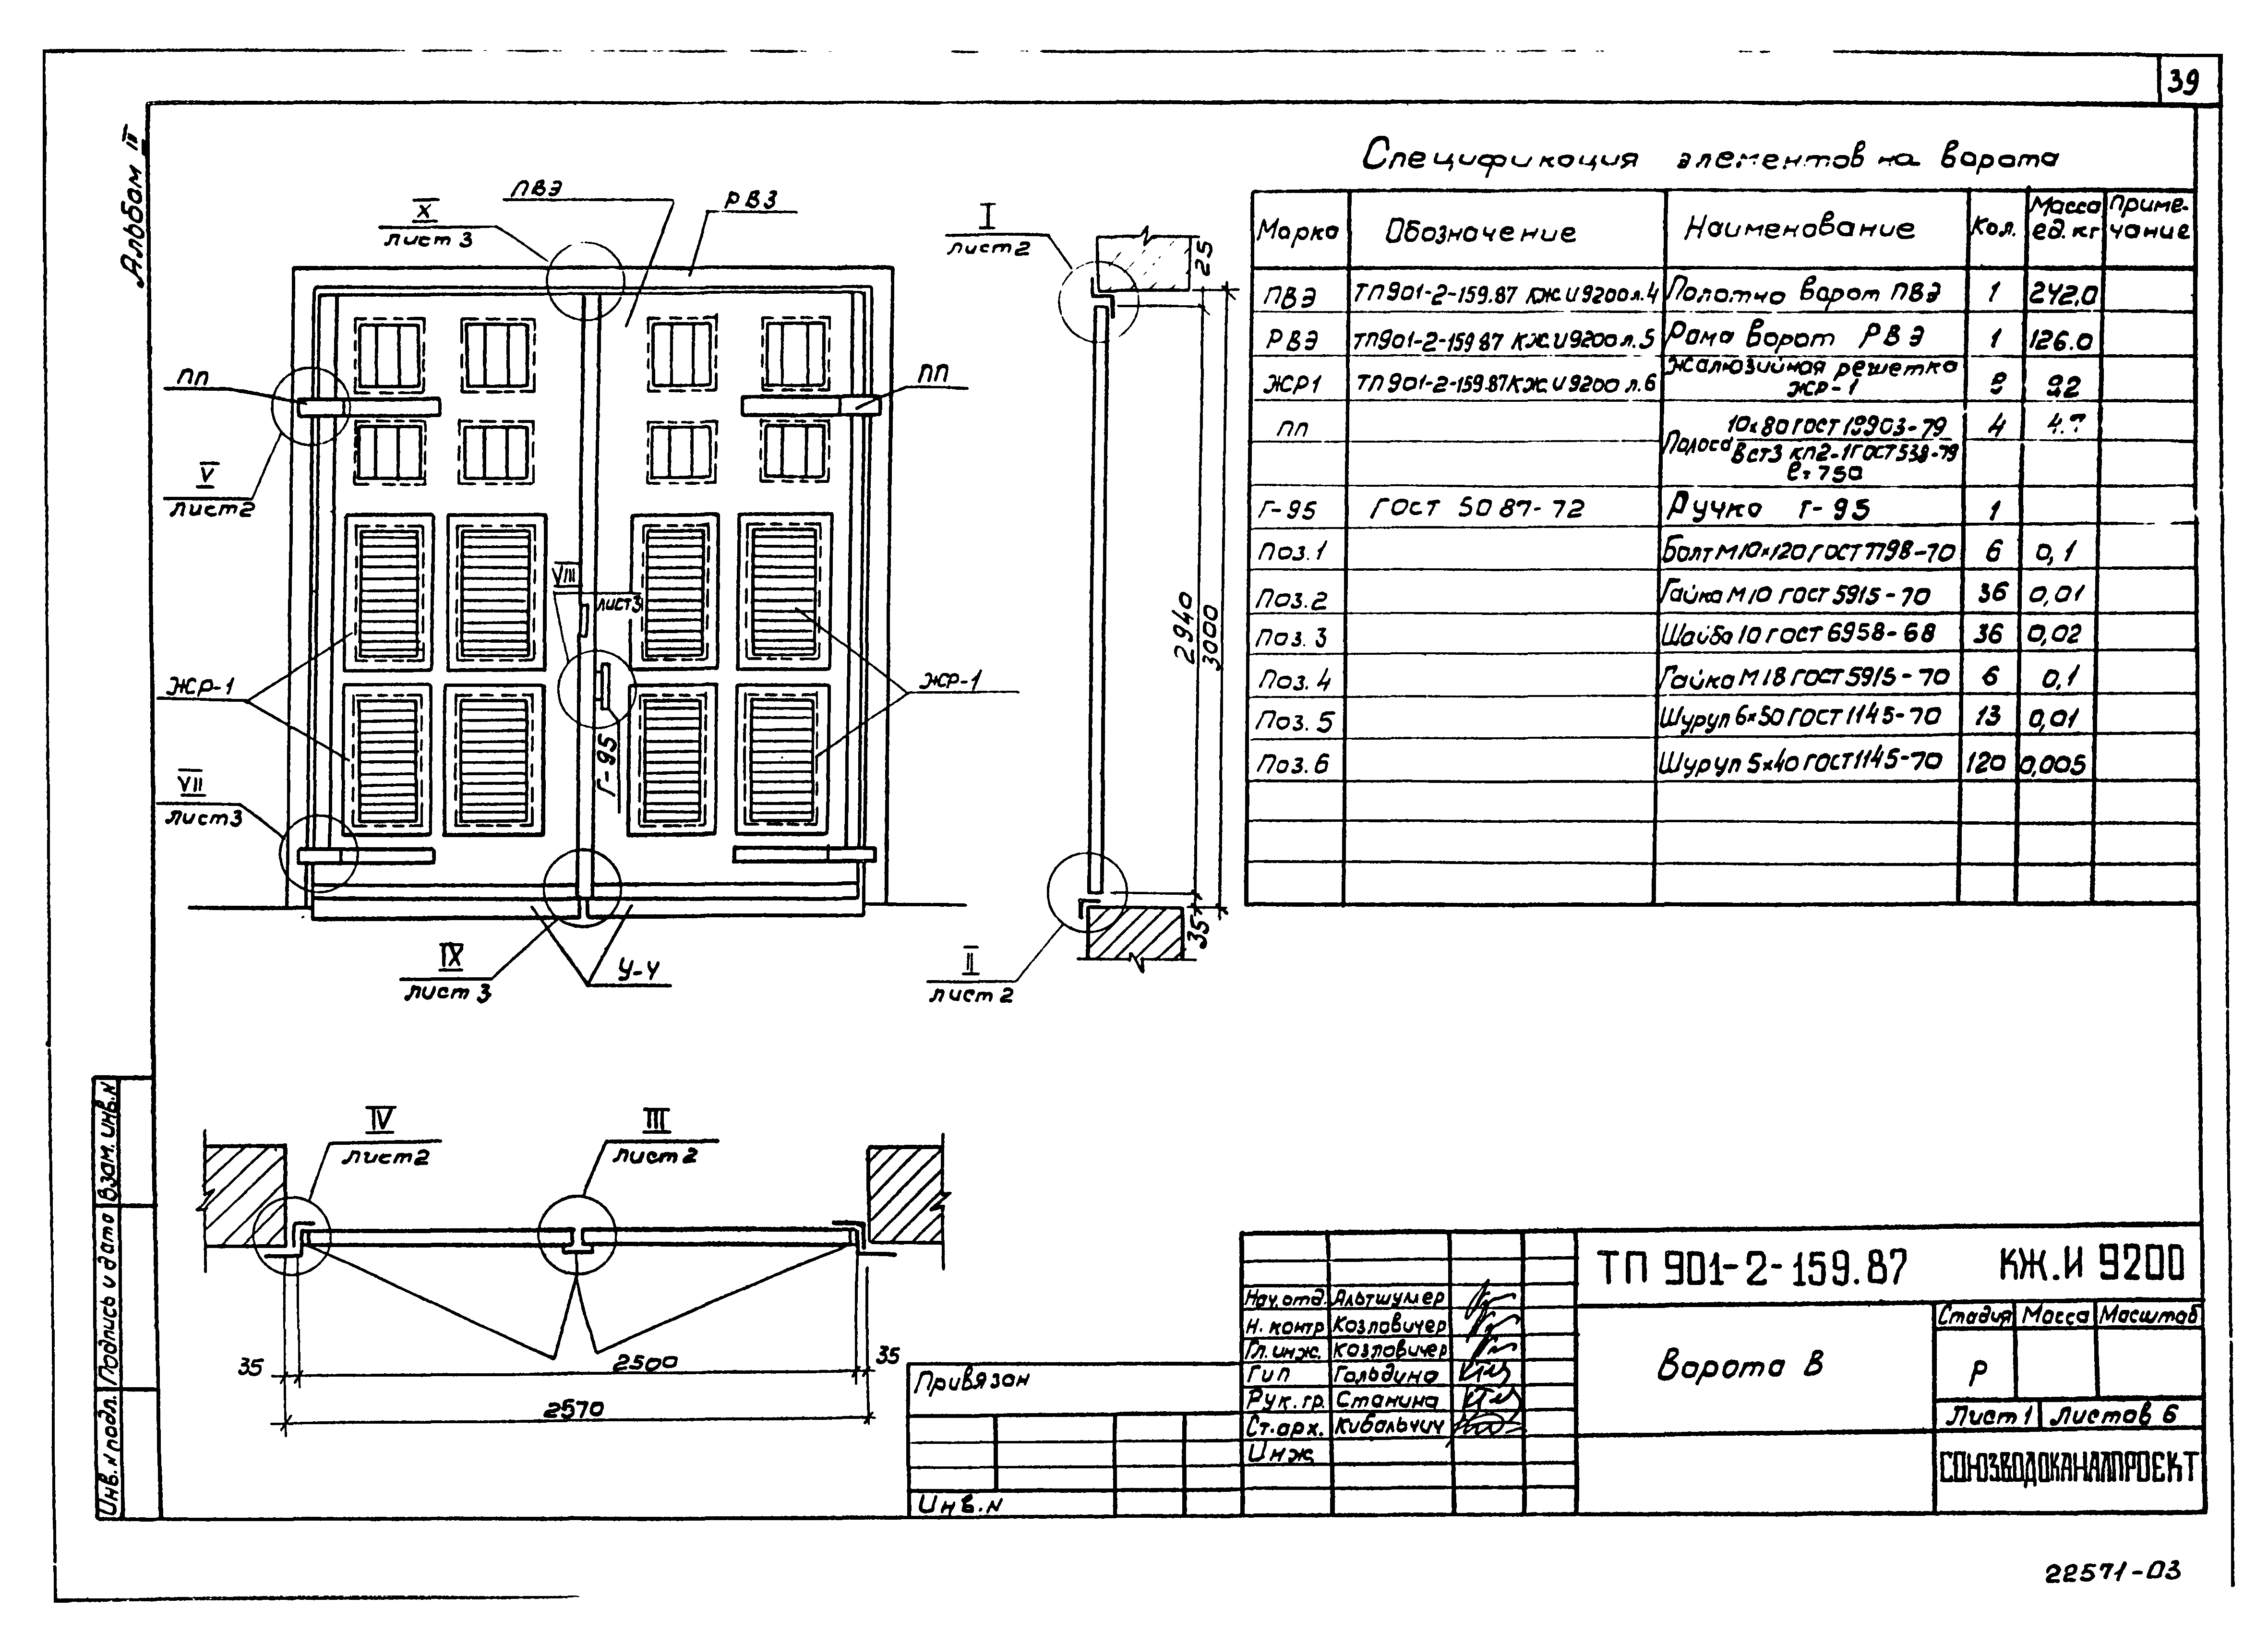 39
Альбом II
X
лист 3
ПВЭ
РВЭ
ПП
ПП
V
лист 2
VIII
лист 3
ЖР-1
ЖР-1
Г-95
VII
лист 3
IX
лист 3
У-4
I
лист 2
25
2940
3000
35
II
лист 2
Спецификация элементов на ворота
Марка Обозначение Наименование Кол. Масса ед. кг Приме-чание
ПВЭ ТП 901-2-159.87 КЖ.И 9200 л.4 Полотно ворот ПВЭ 1 242,0
РВЭ ТП 901-2-159 87 КЖ.И 9200 л.5 Рама ворот РВЭ 1 126.0
ЖР1 ТП 901-2-159.87 КЖ.И 9200 л.6 Жалюзийная решетка ЖР-1
ПП Полоса 10×80 ГОСТ 19903-79 4
Вст3 кп2-1 ГОСТ 538-79
ℓ=750
Г-95 ГОСТ 5087-72 Ручка Г-95 1
Поз.1 Болт М10×120 ГОСТ 7798-70 6 0,1
Поз.2 Гайка М10 ГОСТ 5915-70 36 0,01
Поз. 3 Шайба 10 ГОСТ 6958-68 36 0,02
Поз. 4 Гайка М18 ГОСТ 5915-70 6 0,1
Поз. 5 Шуруп 6×50 ГОСТ 1145-70 13 0,01
Поз. 6 Шуруп 5×40 ГОСТ 1145-70 120 0,005
IV
лист 2
III
лист 2
35
2500
35
2570
Взам. инв. N
Подпись и дата
Инв. N подл.
Привязан
Инв. N
Нач. отд. Альтшумер
Н. контр Козловичер
Гл. инж. Козловичер
Гип Гольдина
Рук. гр. Станина
Ст. арх. Кибальчич
Инж
ТП 901-2-159.87 КЖ.И 9200
Ворота В
Стадия Масса Масштаб
Р
Лист 1 Листов 6
СОЮЗВОДОКАНАЛПРОЕКТ
22571-03